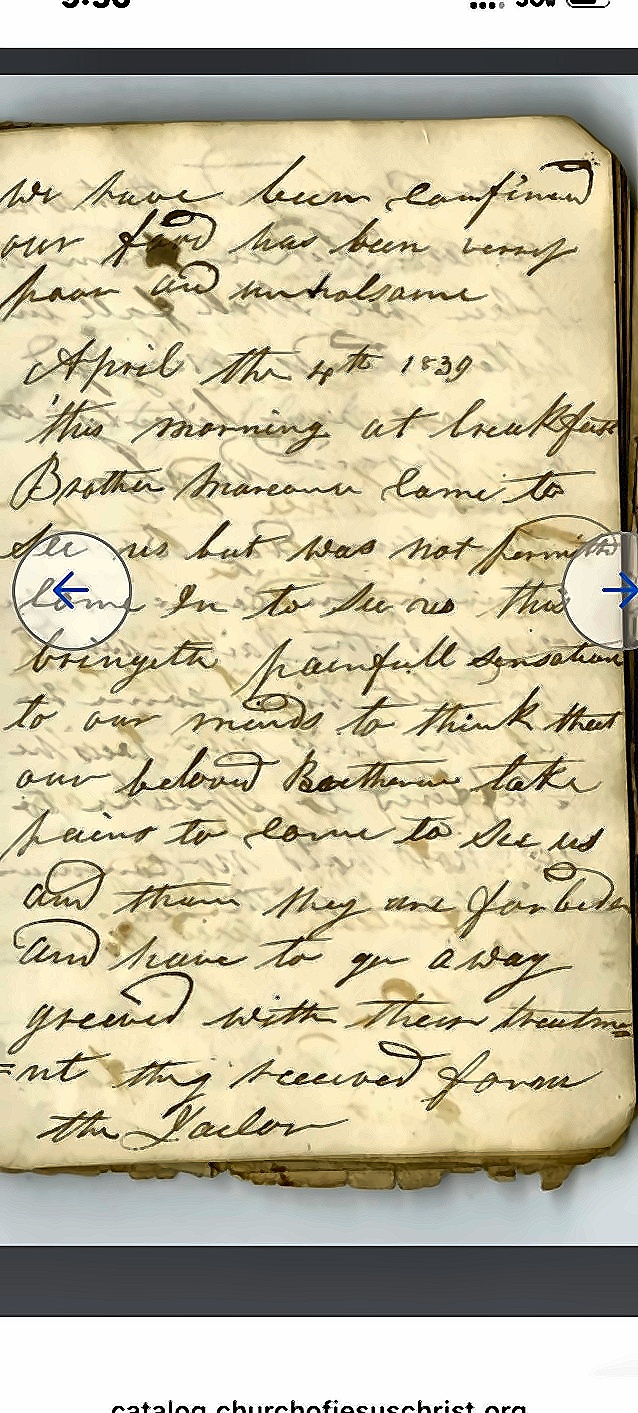 we have been confined
our food has been verry
poor and unholsome
April the 4th 1839
this morning at breakfast
Brother come to
see us but was not permitted
come In to see us this
bringeth painfull sensation
to our minds to think that
our beloved take
pains to come to see us
and them they are forbeden
and have to go away
greeved with their treatme=
=nt they received form
the Jailor
catalog.churchofjesuschrist.org